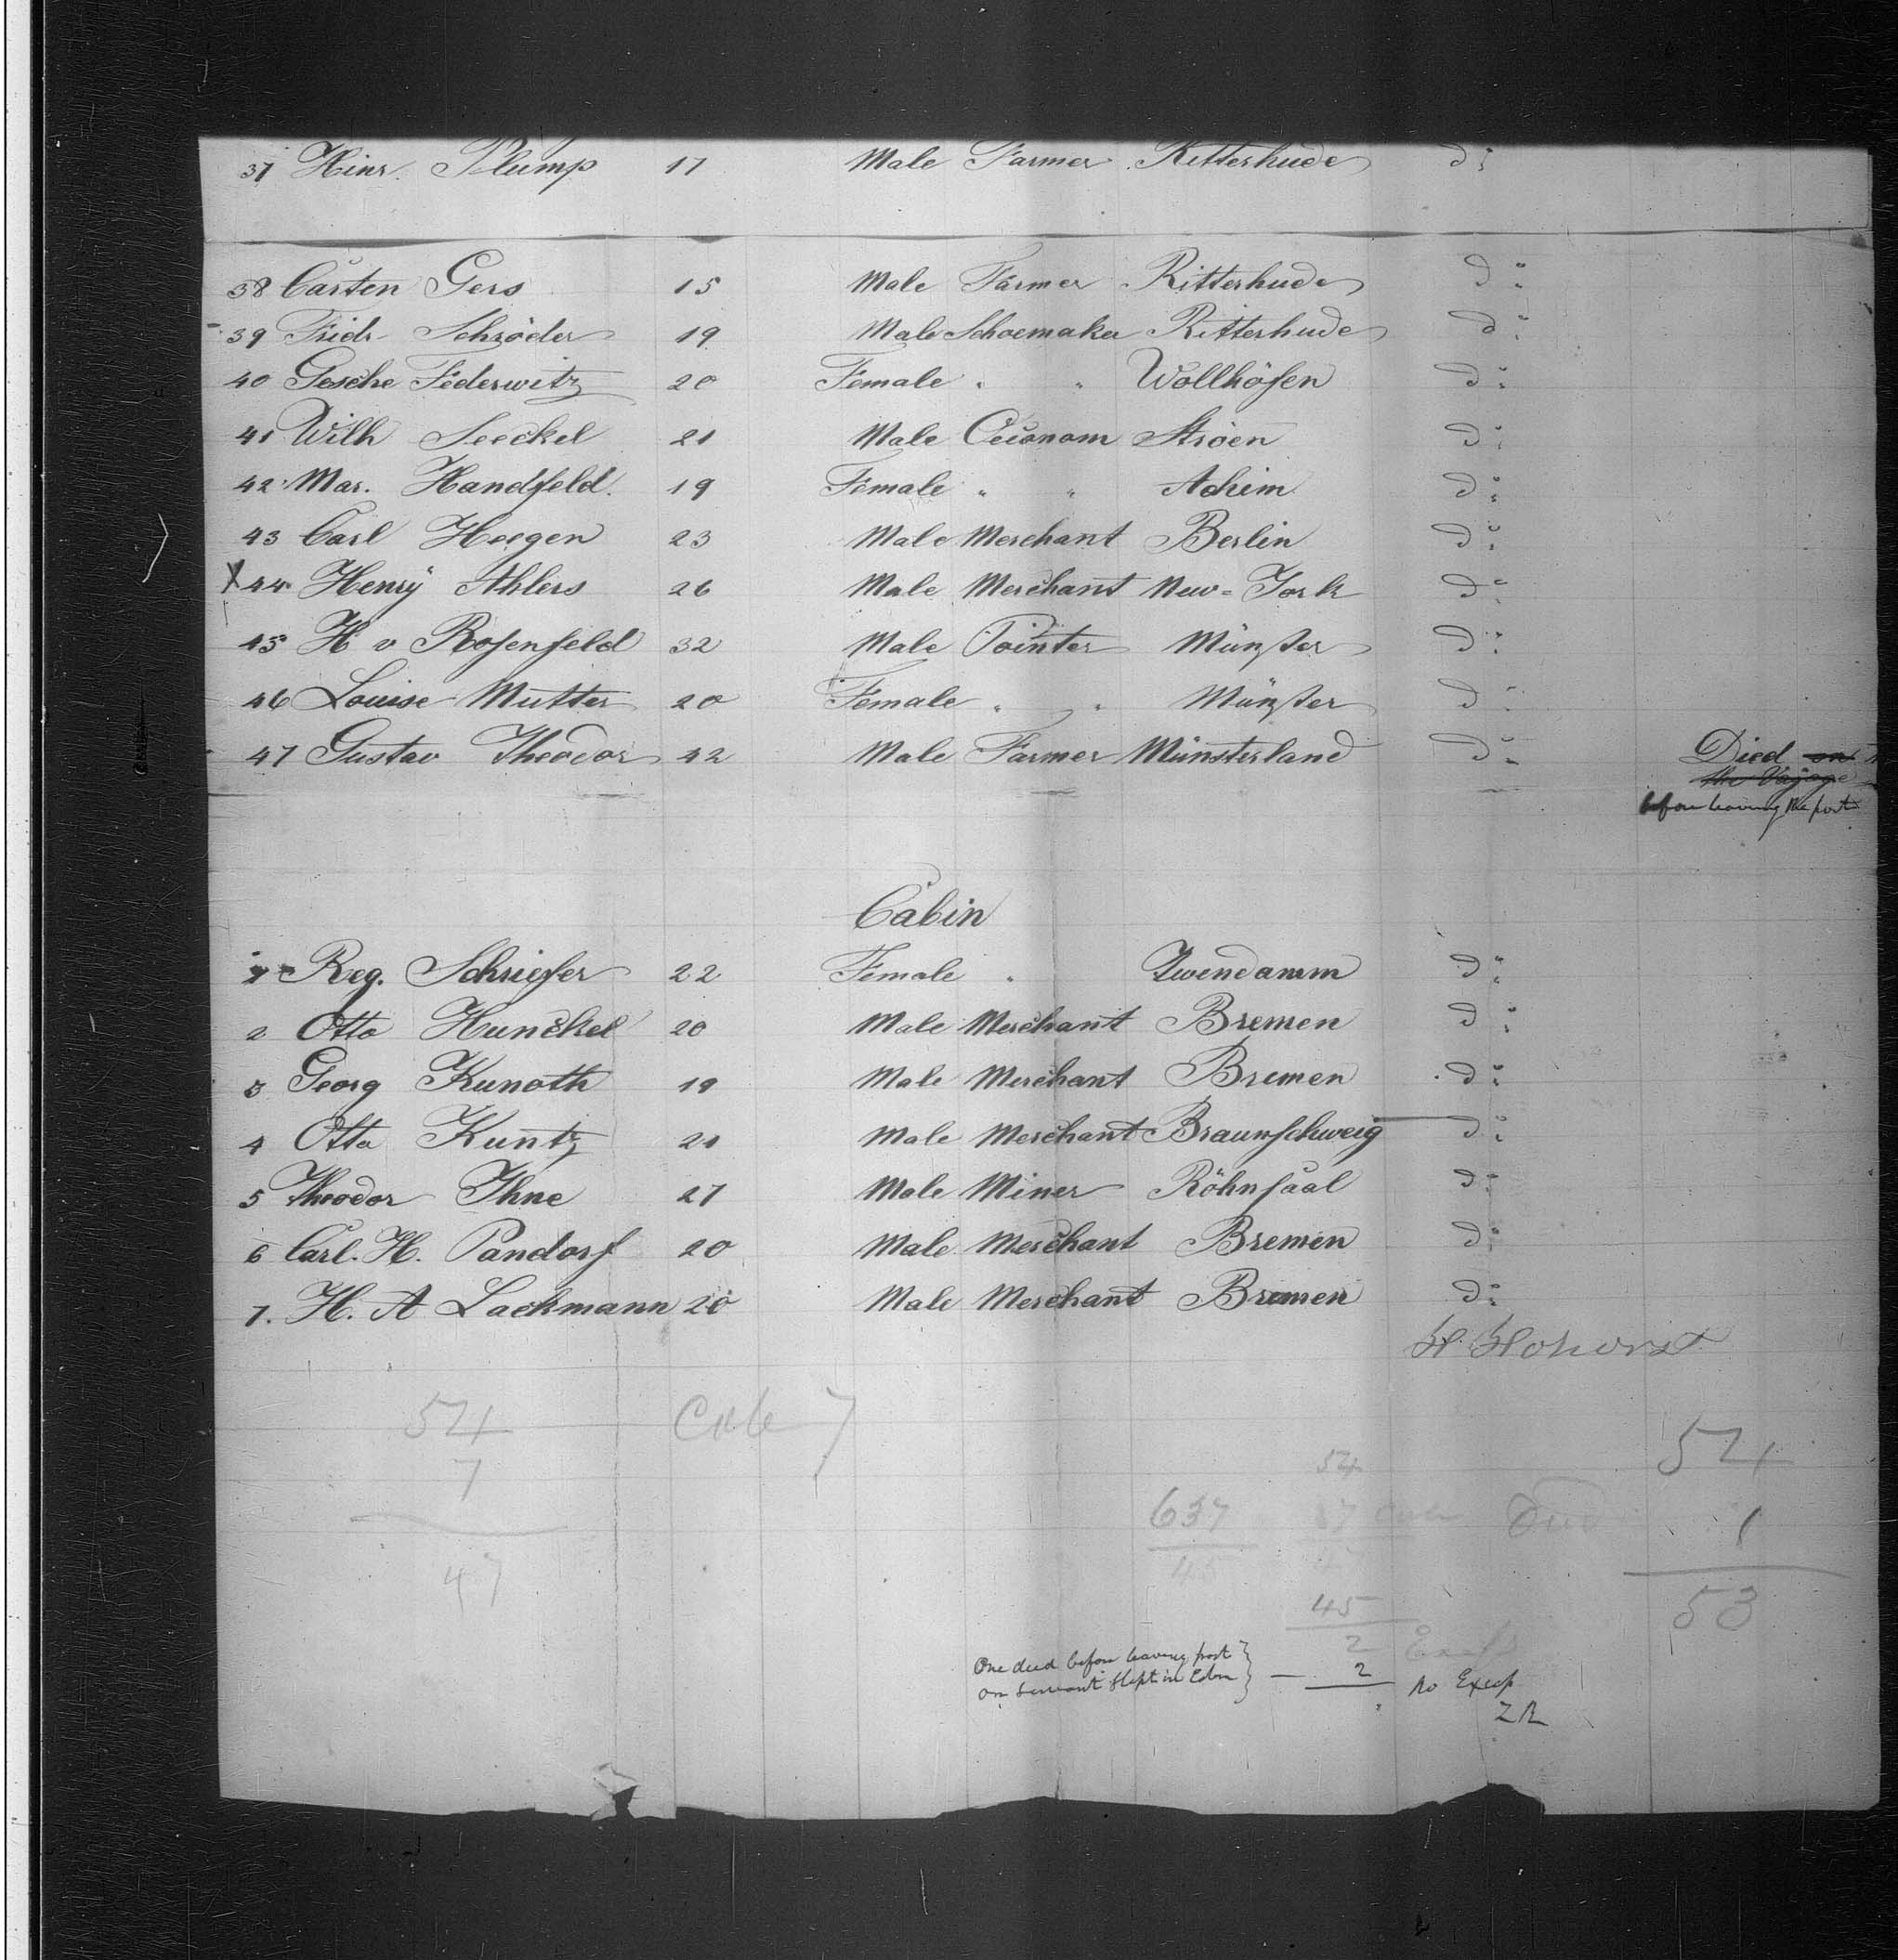 37 Hinr. Plump 17 Male Farmer Ritterhude do
38 Carten Gers 15 Male Farmer Ritterhude do
39 Fridr Schröder 19 Male Schoemaker Ritterhude do
40 Gesche Federwitz 20 Female " " Wollhöfen do
41 Wilh Seeckel 21 Male Oeconom Ströen do
42 Mar. Handfeld. 19 Female " " Achim do
43 Carl Heegen 23 Male Merchant Berlin do
X 44 Henry Ahlers 26 Male Merchant New-York do
45 H v Rosenfeld 32 Male Pointer Münster do
46 Louise Mutter 20 Female " " Münster do
47 Gustav Theodor 42 Male Farmer Münsterland do Died on
the Voyage
before leaving the port
Cabin
1 Reg. Schriefer 22 Female " Zwendamm do
2 Otto Hunckel 20 Male Merchant Bremen do
3 Georg Kunoth 19 Male Merchant Bremen do
4 Otto Kuntz 21 Male Merchant Braunschweig do
5 Theodor Ihne 27 Male Miner Röhnsaal do
6 Carl. H. Pandorf 20 Male Merchant Bremen do
7. H. A Lackmann 20 Male Merchant Bremen do
54 Cab 7 54
7 54
637 Died 1
47 45 53
45
2
One died before leaving port
on servant Slept in 2
No Excep